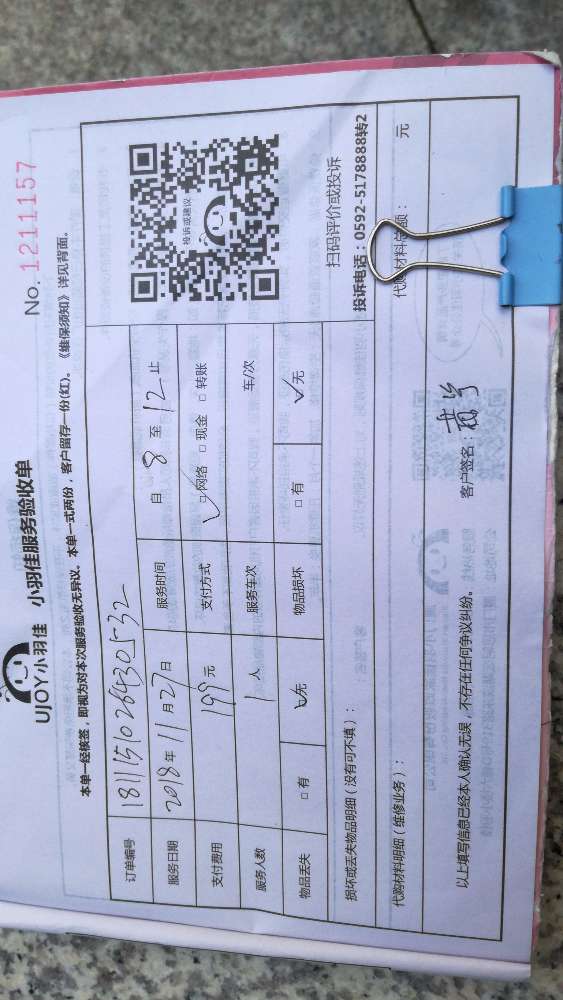 UJOY小羽佳 小羽佳服务验收单
No. 1211157
本单一经核签，即视为对本次服务验收无异议。本单一式两份，客户留存一份(红)。《维保须知》详见背面。
订单编号 181115102643053​2
服务日期 2018年11月27日 服务时间 自8至12止
支付费用 199元 支付方式 ☑网络 □现金 □转账
服务人数 1人 服务车次 车/次
物品丢失 □有 ☑无 物品损坏 □有 ☑无
投诉或建议
扫码评价或投诉
投诉电话：0592-5178888转2
损坏或丢失物品明细（没有可不填）：
代购材料明细（维修业务）： 代购材料总额： 元
以上填写信息已经本人确认无误，不存在任何争议纠纷。 客户签名：